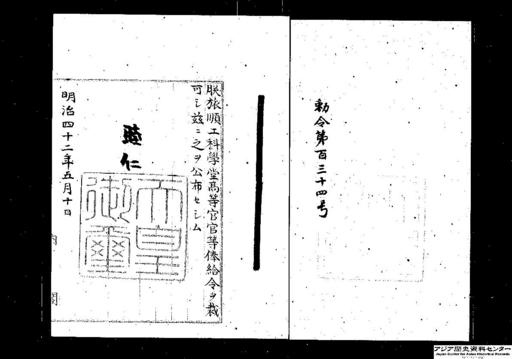 勅令第百三十四号
朕旅順工科學堂高等官官等俸給令ヲ裁
可シ茲ニ之ヲ公布セシム
睦仁
天皇
御璽
明治四十二年五月十日
内閣
アジア歴史資料センター
Japan Center for Asian Historical Records